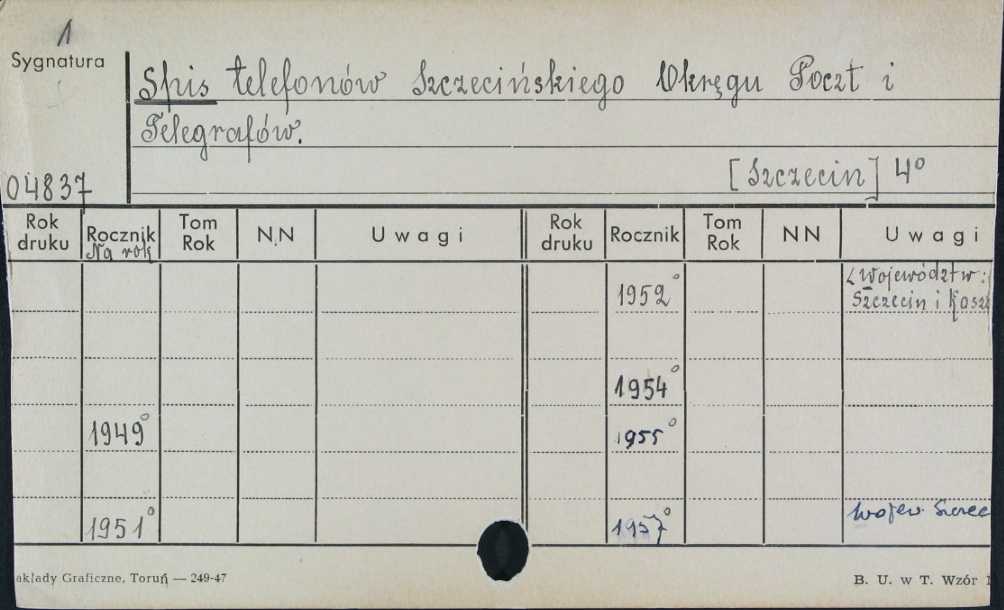 1
Sygnatura
Spis telefonów Szczecińskiego Okręgu Poczt i
Telegrafów.
[Szczecin] 4º
04837
Rok druku Rocznik Na rok Tom Rok N.N Uwagi Rok druku Rocznik Tom Rok NN Uwagi
1952º
[województw:
Szczecin i Kosz
1954º
1949º 1955º
1951º 1957º wojew.
akłady Graficzne, Toruń — 249-47 B. U. w T. Wzór 1